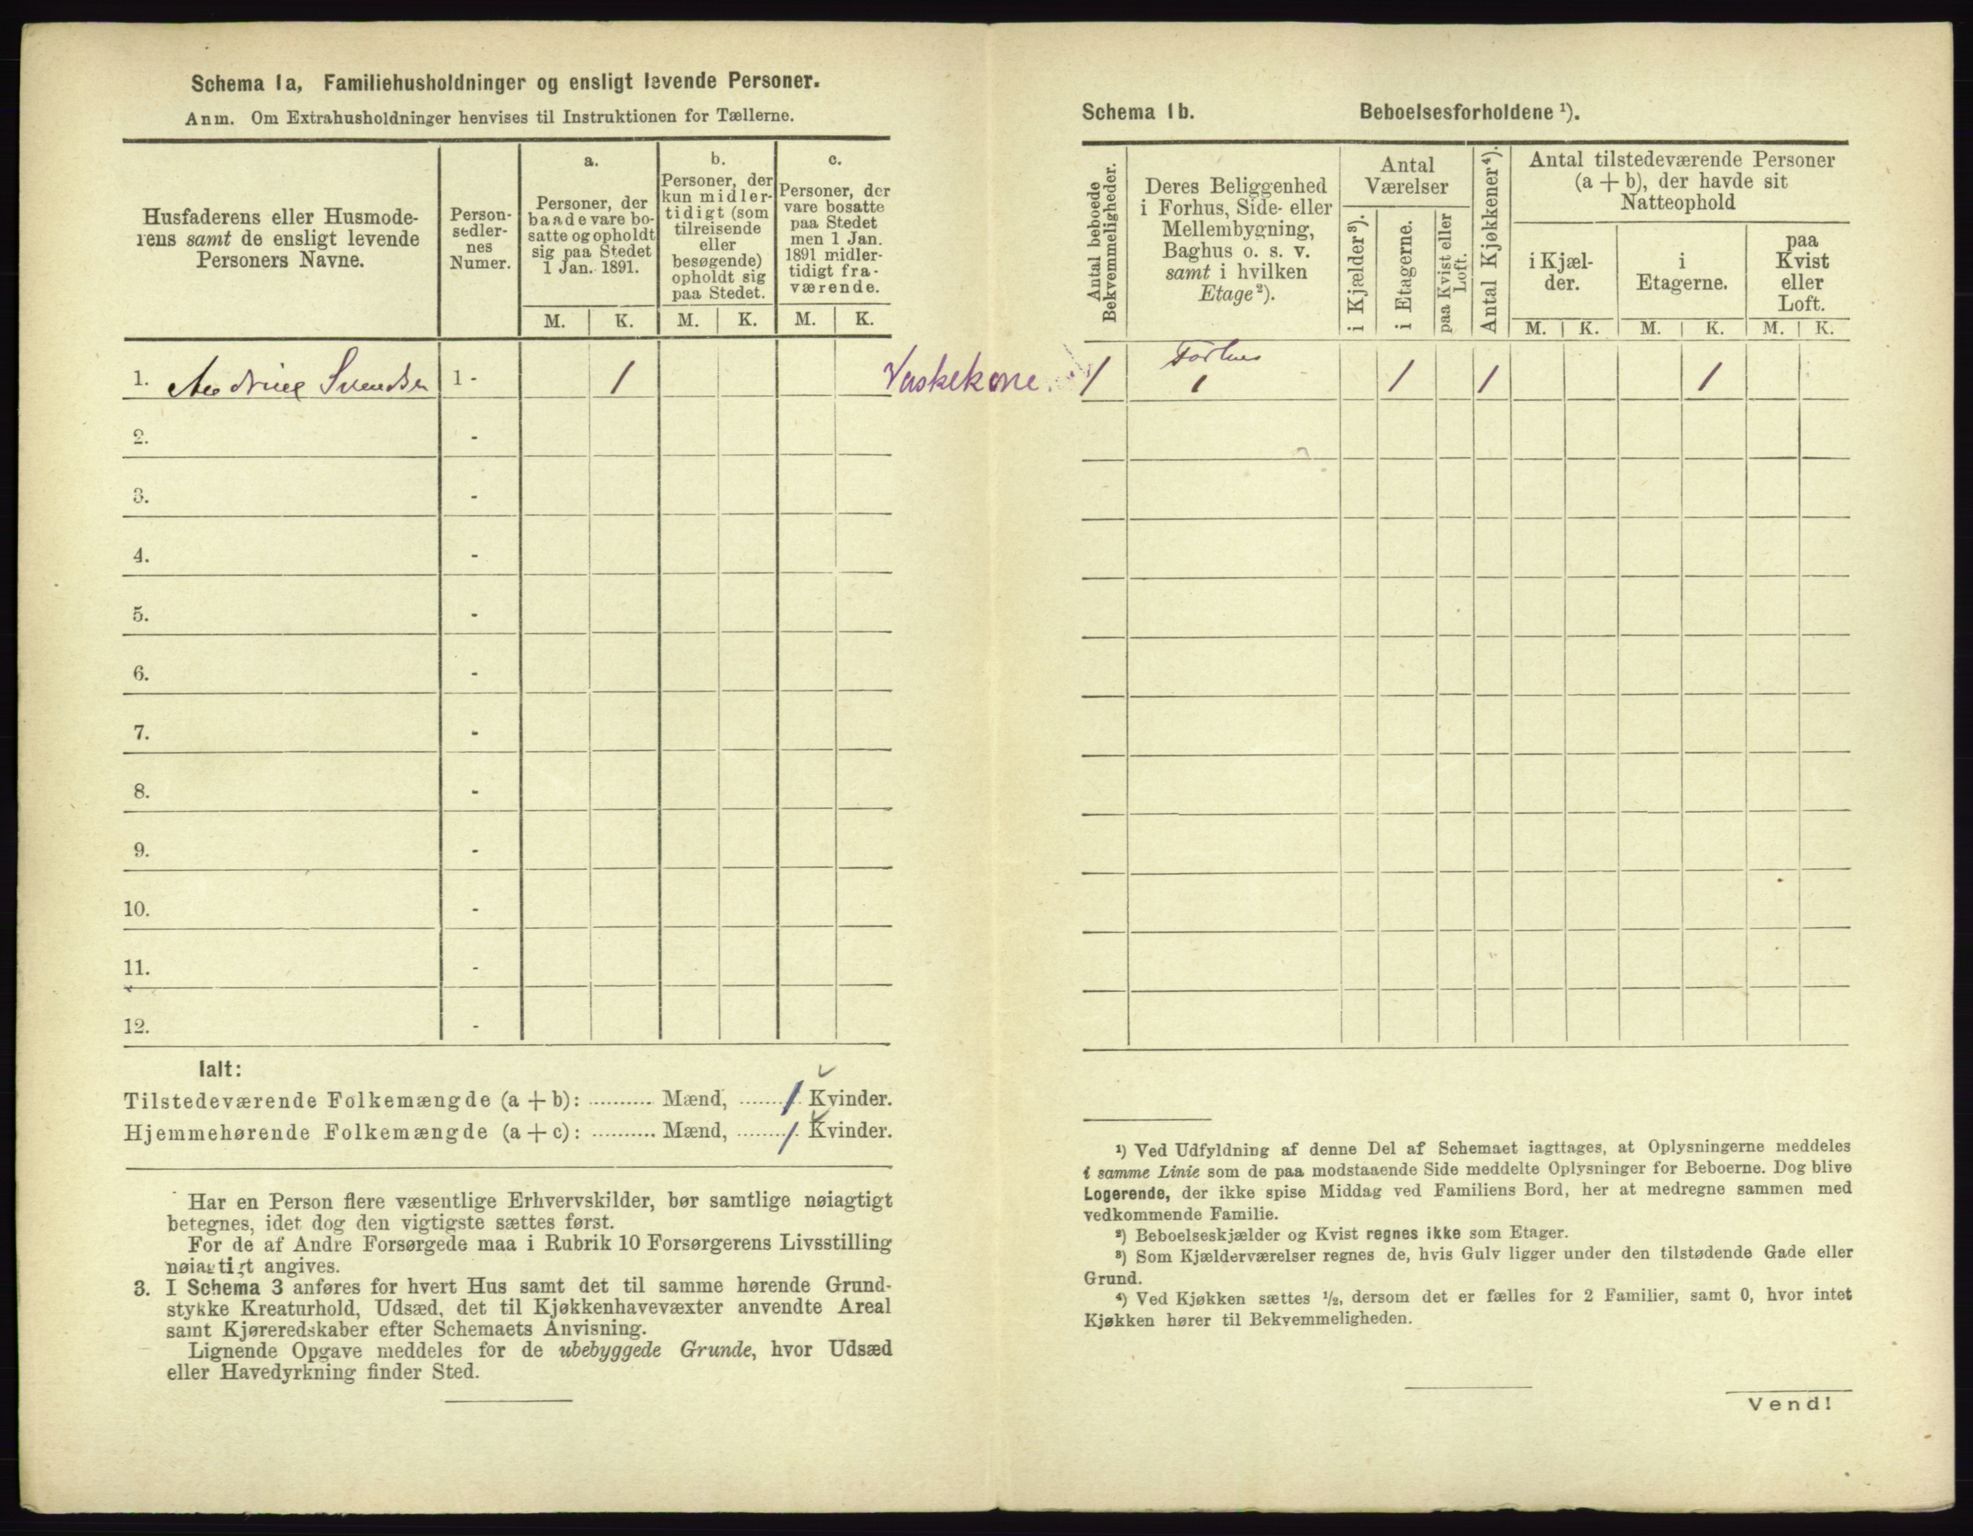 Schema 1a, Familiehusholdninger og ensligt levende Personer.
Anm. Om Extrahusholdninger henvises til Instruktionen for Tællerne.
Husfaderens eller Husmode-
rens samt de ensligt levende
Personers Navne.
Person-
sedler-
nes
Numer.
a.
Personer, der
baade vare bo-
satte og opholdt
sig paa Stedet
1 Jan. 1891.
b.
Personer, der
kun midler-
tidigt (som
tilreisende
eller
besøgende)
opholdt sig
paa Stedet.
c.
Personer, der
vare bosatte
paa Stedet
men 1 Jan.
1891 midler-
tidigt fra-
værende.
M. K. M. K. M. K.
1. Svendsen 1 - 1 Vaskekone.
2. -
3. -
4. -
5. -
6. -
7. -
8. -
9. -
10. -
11. -
12. -
Ialt:
Tilstedeværende Folkemængde (a + b): .......... Mænd, ........ 1 Kvinder.
Hjemmehørende Folkemængde (a + c): .......... Mænd, ........ 1 Kvinder.
Har en Person flere væsentlige Erhvervskilder, bør samtlige nøiagtigt
betegnes, idet dog den vigtigste sættes først.
For de af Andre Forsørgede maa i Rubrik 10 Forsørgerens Livsstilling
nøiagtigt angives.
3. I Schema 3 anføres for hvert Hus samt det til samme hørende Grund-
stykke Kreaturhold, Udsæd, det til Kjøkkenhavevæxter anvendte Areal
samt Kjøreredskaber efter Schemaets Anvisning.
Lignende Opgave meddeles for de ubebyggede Grunde, hvor Udsæd
eller Havedyrkning finder Sted.
Schema 1b. Beboelsesforholdene ¹).
Antal beboede
Bekvemmeligheder.
Deres Beliggenhed
i Forhus, Side- eller
Mellembygning,
Baghus o. s. v.
samt i hvilken
Etage²).
Antal
Værelser
i Kjælder³).
i Etagerne.
paa Kvist eller
Loft.
Antal Kjøkkener⁴).
Antal tilstedeværende Personer
(a + b), der havde sit
Natteophold
i Kjæl-
der.
i
Etagerne.
paa
Kvist
eller
Loft.
M. K. M. K. M. K.
Forhus
1 1 1 1 1
¹) Ved Udfyldning af denne Del af Schemaet iagttages, at Oplysningerne meddeles
i samme Linie som de paa modstaaende Side meddelte Oplysninger for Beboerne. Dog blive
Logerende, der ikke spise Middag ved Familiens Bord, her at medregne sammen med
vedkommende Familie.
²) Beboelseskjælder og Kvist regnes ikke som Etager.
³) Som Kjælderværelser regnes de, hvis Gulv ligger under den tilstødende Gade eller
Grund.
⁴) Ved Kjøkken sættes ½, dersom det er fælles for 2 Familier, samt 0, hvor intet
Kjøkken hører til Bekvemmeligheden.
Vend!